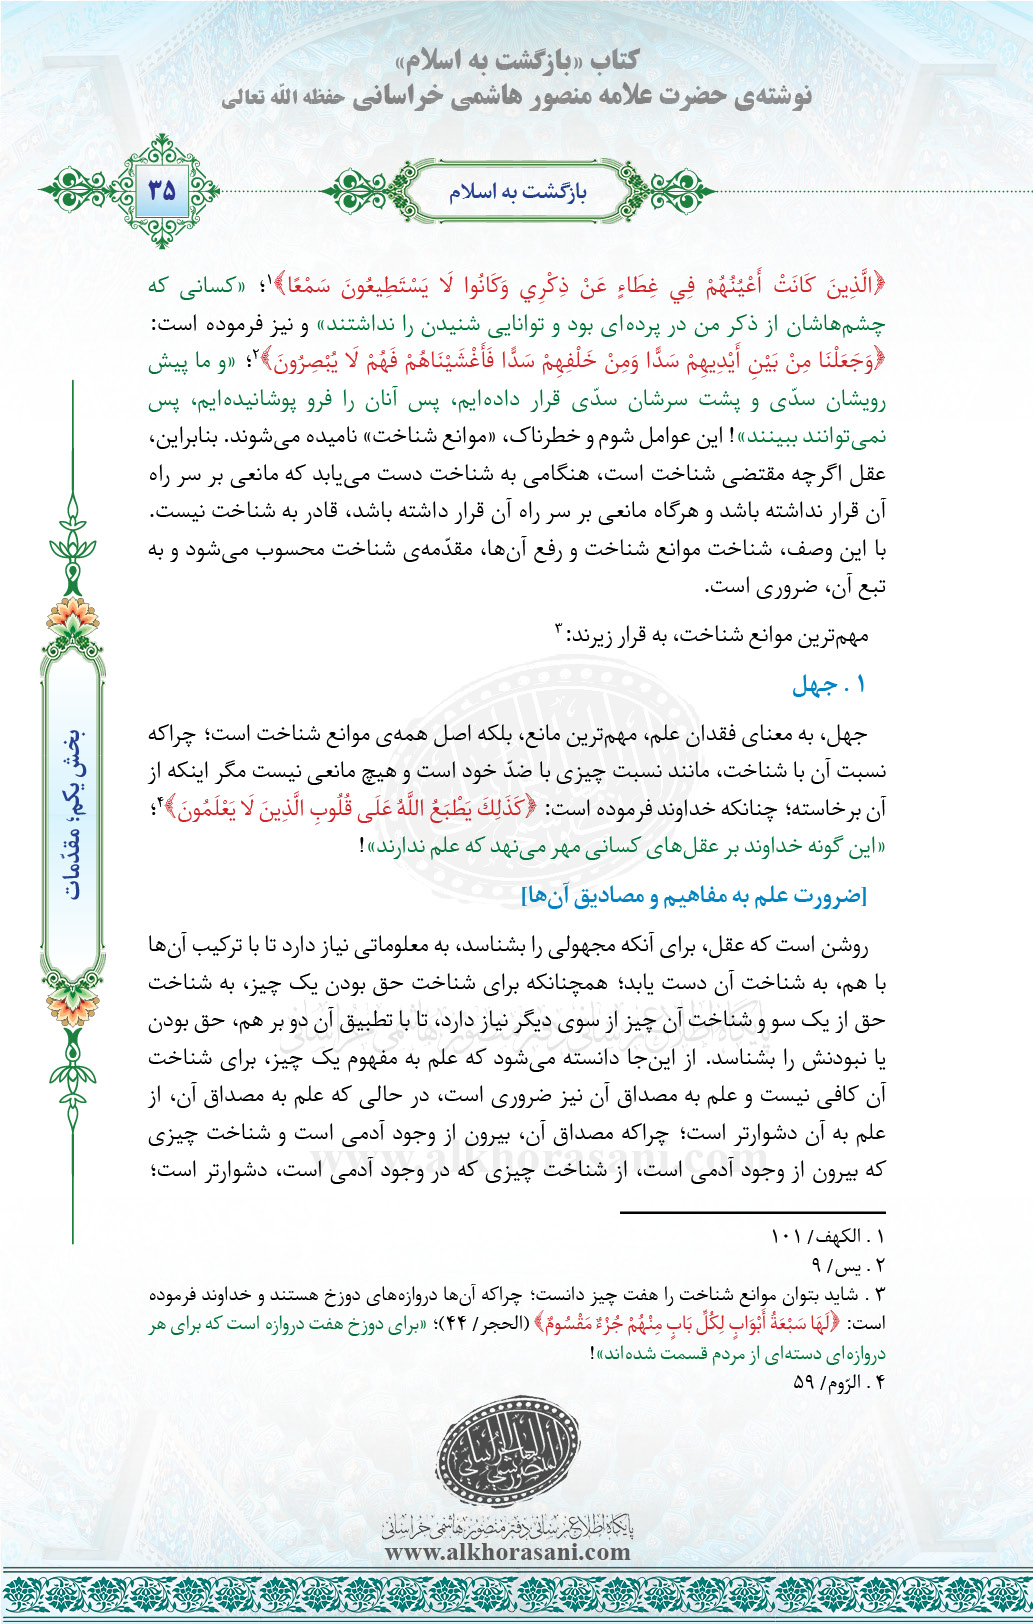 کتاب «بازگشت به اسلام»
نوشته‌ی حضرت علامه منصور هاشمی خراسانی حفظه الله تعالی
۳۵
بازگشت به اسلام
﴿الَّذِينَ كَانَتْ أَعْيُنُهُمْ فِي غِطَاءٍ عَنْ ذِكْرِي وَكَانُوا لَا يَسْتَطِيعُونَ سَمْعًا﴾۱؛ «کسانی که
چشم‌هاشان از ذکر من در پرده‌ای بود و توانایی شنیدن را نداشتند» و نیز فرموده است:
﴿وَجَعَلْنَا مِنْ بَيْنِ أَيْدِيهِمْ سَدًّا وَمِنْ خَلْفِهِمْ سَدًّا فَأَغْشَيْنَاهُمْ فَهُمْ لَا يُبْصِرُونَ﴾۲؛ «و ما پیش
رویشان سدّی و پشت سرشان سدّی قرار داده‌ایم، پس آنان را فرو پوشانیده‌ایم، پس
نمی‌توانند ببینند»! این عوامل شوم و خطرناک، «موانع شناخت» نامیده می‌شوند. بنابراین،
عقل اگرچه مقتضی شناخت است، هنگامی به شناخت دست می‌یابد که مانعی بر سر راه
آن قرار نداشته باشد و هرگاه مانعی بر سر راه آن قرار داشته باشد، قادر به شناخت نیست.
با این وصف، شناخت موانع شناخت و رفع آن‌ها، مقدّمه‌ی شناخت محسوب می‌شود و به
تبع آن، ضروری است.
مهم‌ترین موانع شناخت، به قرار زیرند:۳
۱ . جهل
جهل، به معنای فقدان علم، مهم‌ترین مانع، بلکه اصل همه‌ی موانع شناخت است؛ چراکه
نسبت آن با شناخت، مانند نسبت چیزی با ضدّ خود است و هیچ مانعی نیست مگر اینکه از
آن برخاسته؛ چنانکه خداوند فرموده است: ﴿كَذَلِكَ يَطْبَعُ اللَّهُ عَلَى قُلُوبِ الَّذِينَ لَا يَعْلَمُونَ﴾۴؛
«این گونه خداوند بر عقل‌های کسانی مهر می‌نهد که علم ندارند»!
[ضرورت علم به مفاهیم و مصادیق آن‌ها]
روشن است که عقل، برای آنکه مجهولی را بشناسد، به معلوماتی نیاز دارد تا با ترکیب آن‌ها
با هم، به شناخت آن دست یابد؛ همچنانکه برای شناخت حق بودن یک چیز، به شناخت
حق از یک سو و شناخت آن چیز از سوی دیگر نیاز دارد، تا با تطبیق آن دو بر هم، حق بودن
یا نبودنش را بشناسد. از این‌جا دانسته می‌شود که علم به مفهوم یک چیز، برای شناخت
آن کافی نیست و علم به مصداق آن نیز ضروری است، در حالی که علم به مصداق آن، از
علم به آن دشوارتر است؛ چراکه مصداق آن، بیرون از وجود آدمی است و شناخت چیزی
که بیرون از وجود آدمی است، از شناخت چیزی که در وجود آدمی است، دشوارتر است؛
بخش یکم؛ مقدّمات
۱ . الکهف/ ۱۰۱
۲ . یس/ ۹
۳ . شاید بتوان موانع شناخت را هفت چیز دانست؛ چراکه آن‌ها دروازه‌های دوزخ هستند و خداوند فرموده
است: ﴿لَهَا سَبْعَةُ أَبْوَابٍ لِكُلِّ بَابٍ مِنْهُمْ جُزْءٌ مَقْسُومٌ﴾ (الحجر/ ۴۴)؛ «برای دوزخ هفت دروازه است که برای هر
دروازه‌ای دسته‌ای از مردم قسمت شده‌اند»!
۴ . الرّوم/ ۵۹
پایگاه اطلاع‌رسانی دفتر منصور هاشمی خراسانی
www.alkhorasani.com